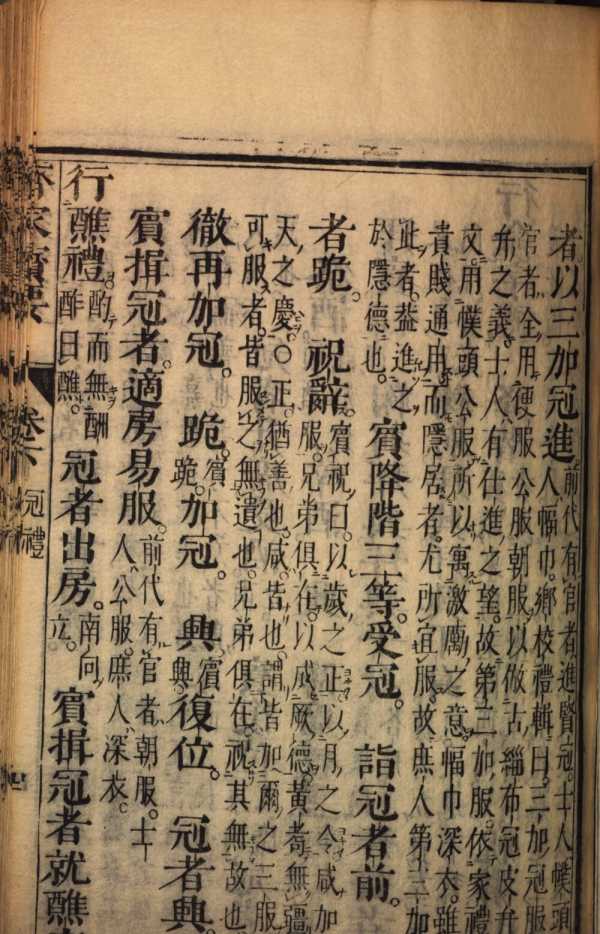 者以三加冠進
前代有官者進賢冠。士人幞頭
人幅巾。鄉校禮輯曰。三加冠服
官者全用便服公服朝服。以倣古緇布冠皮弁
弁之義。士人有仕進之望。故第三加服。依家禮
文。用幞頭公服。所以寓激勵之意。幅巾深衣。雖
貴賤通用。而隱居者。尤所宜服。故庶人第三加
此者。蓋進之
於隱德也。
賓降階三等。受冠。 詣冠者前。
者跪。 祝辭。
賓祝曰。以歲之正。以月之令。咸加
服。兄弟俱在。以成厥德。黃耇無疆
天之慶。○正猶善也。咸皆也。謂皆加爾之三服
可服者。皆服之無遺也。兄弟俱在。祝其無故也
徹再加冠。 跪。
賓跪。
加冠。 興
賓興。
復位。 冠者興
賓揖冠者。適房易服。
前代有官者朝服。士
人公服。庶人深衣。
行醮禮。
酌而無酬
酢曰醮。
冠者出房。
南向立。
賓揖冠者就醮
家寶要 卷六 冠禮